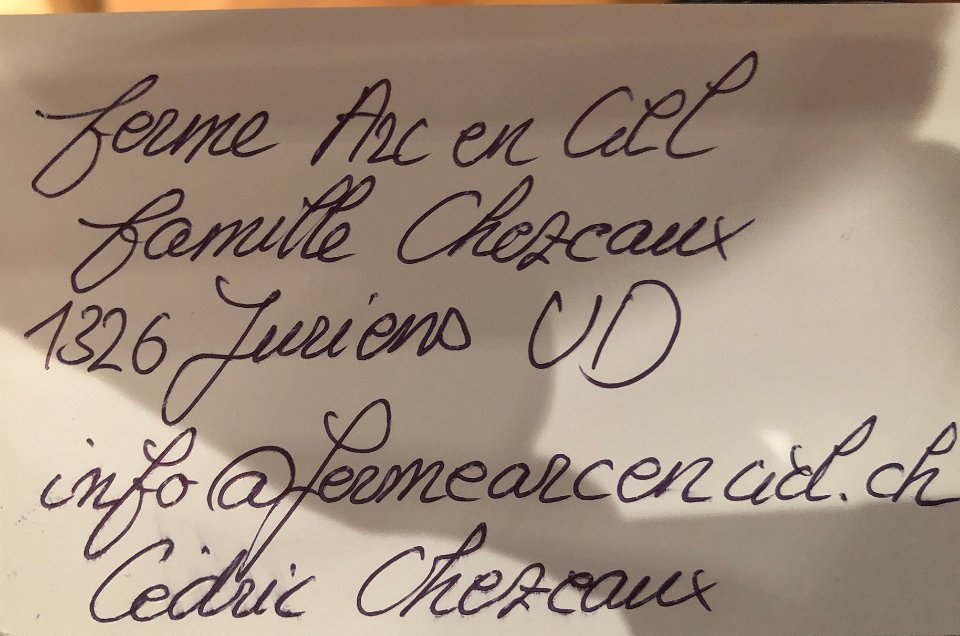 Ferme Arc en Ciel
famille Chezeaux
1326 Juriens VD
info@fermearcenciel.ch
Cédric Chezeaux